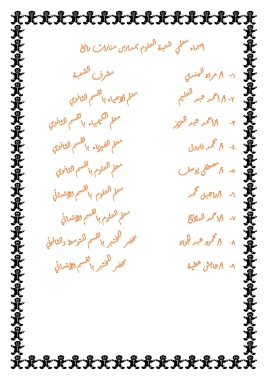 اسماء معلمي شعبة العلوم بمدارس منارات
مشرف الشعبة
١- أ/ مراد الهنيدي
٢- أ/ أحمد عبد العليم معلم الاحياء بالقسم الثانوي
٣- أ/ أحمد عبد العزيز معلم الكيمياء بالقسم الثانوي
٤- أ/ محمد فاروق معلم الفيزياء بالقسم الثانوي
٥- أ/ مصطفى يوسف معلم العلوم بالقسم الثانوي
٦- أ/ محمد معلم العلوم بالقسم الابتدائي
٧- أ/ أحمد معلم العلوم بالقسم الابتدائي
٨- أ/ محمود عبد الجواد محضر المختبر بالقسم المتوسط والثانوي
٩- أ/ عطية محضر المختبر بالقسم الابتدائي